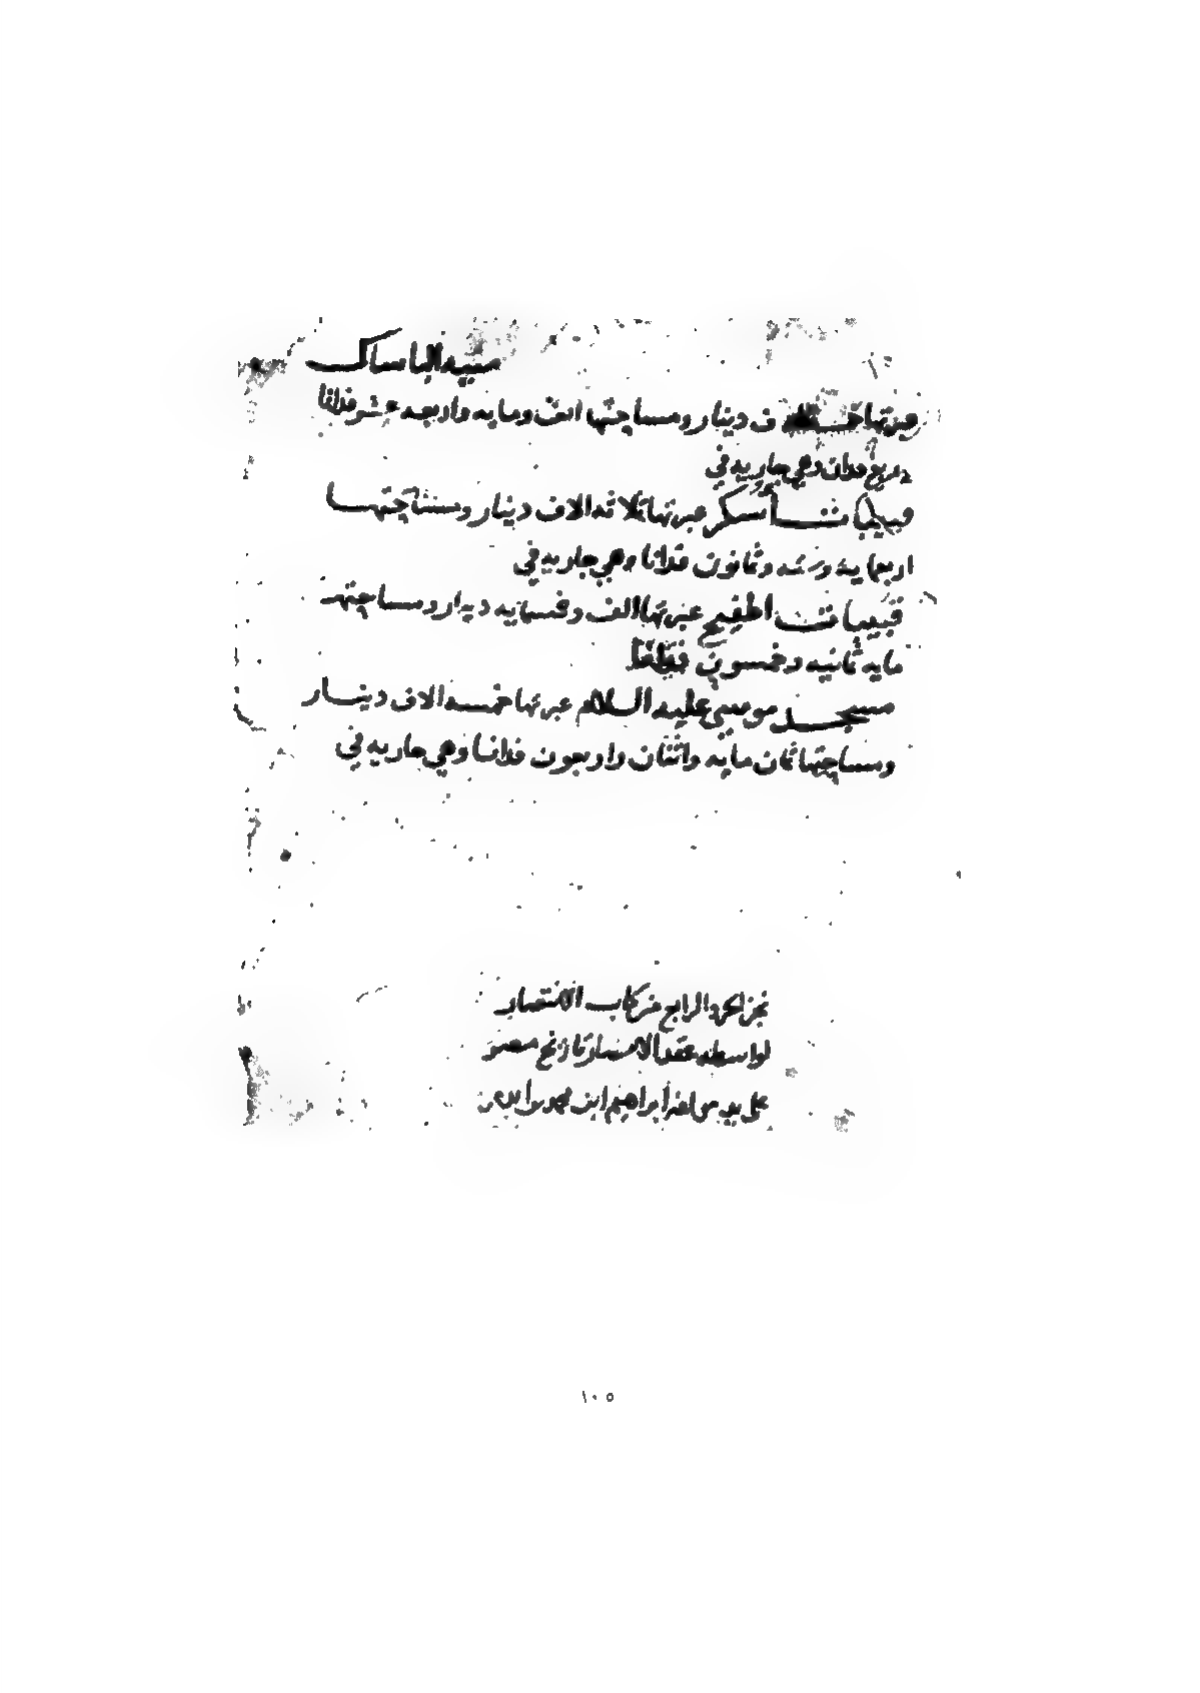 منية الباساك
عبرتها خمسة الاف دينار ومساحتها الف ومايه واربعه عشر فدانا
وربع فدان وهي جاريه في
قبيبات أسكر عبرتها ثلاثه الاف دينار ومساحتها
اربعمايه وسته وثمانون فدانا وهي جاريه في
قبيبات اطفيح عبرتها الف وخمسمايه دينار ومساحتها
مايه ثمانيه وخمسون فدانا
مسجد موسي عليه السلام عبرتها خمسه الاف دينار
ومساحتها ثمان مايه واثنان واربعون فدانا وهي جاريه في
نجز الجزء الرابع من كتاب الانتصار
لواسطه عقد الامصار تاريخ مصر
على يد مولفه ابراهيم ابن محمد
١٠٥